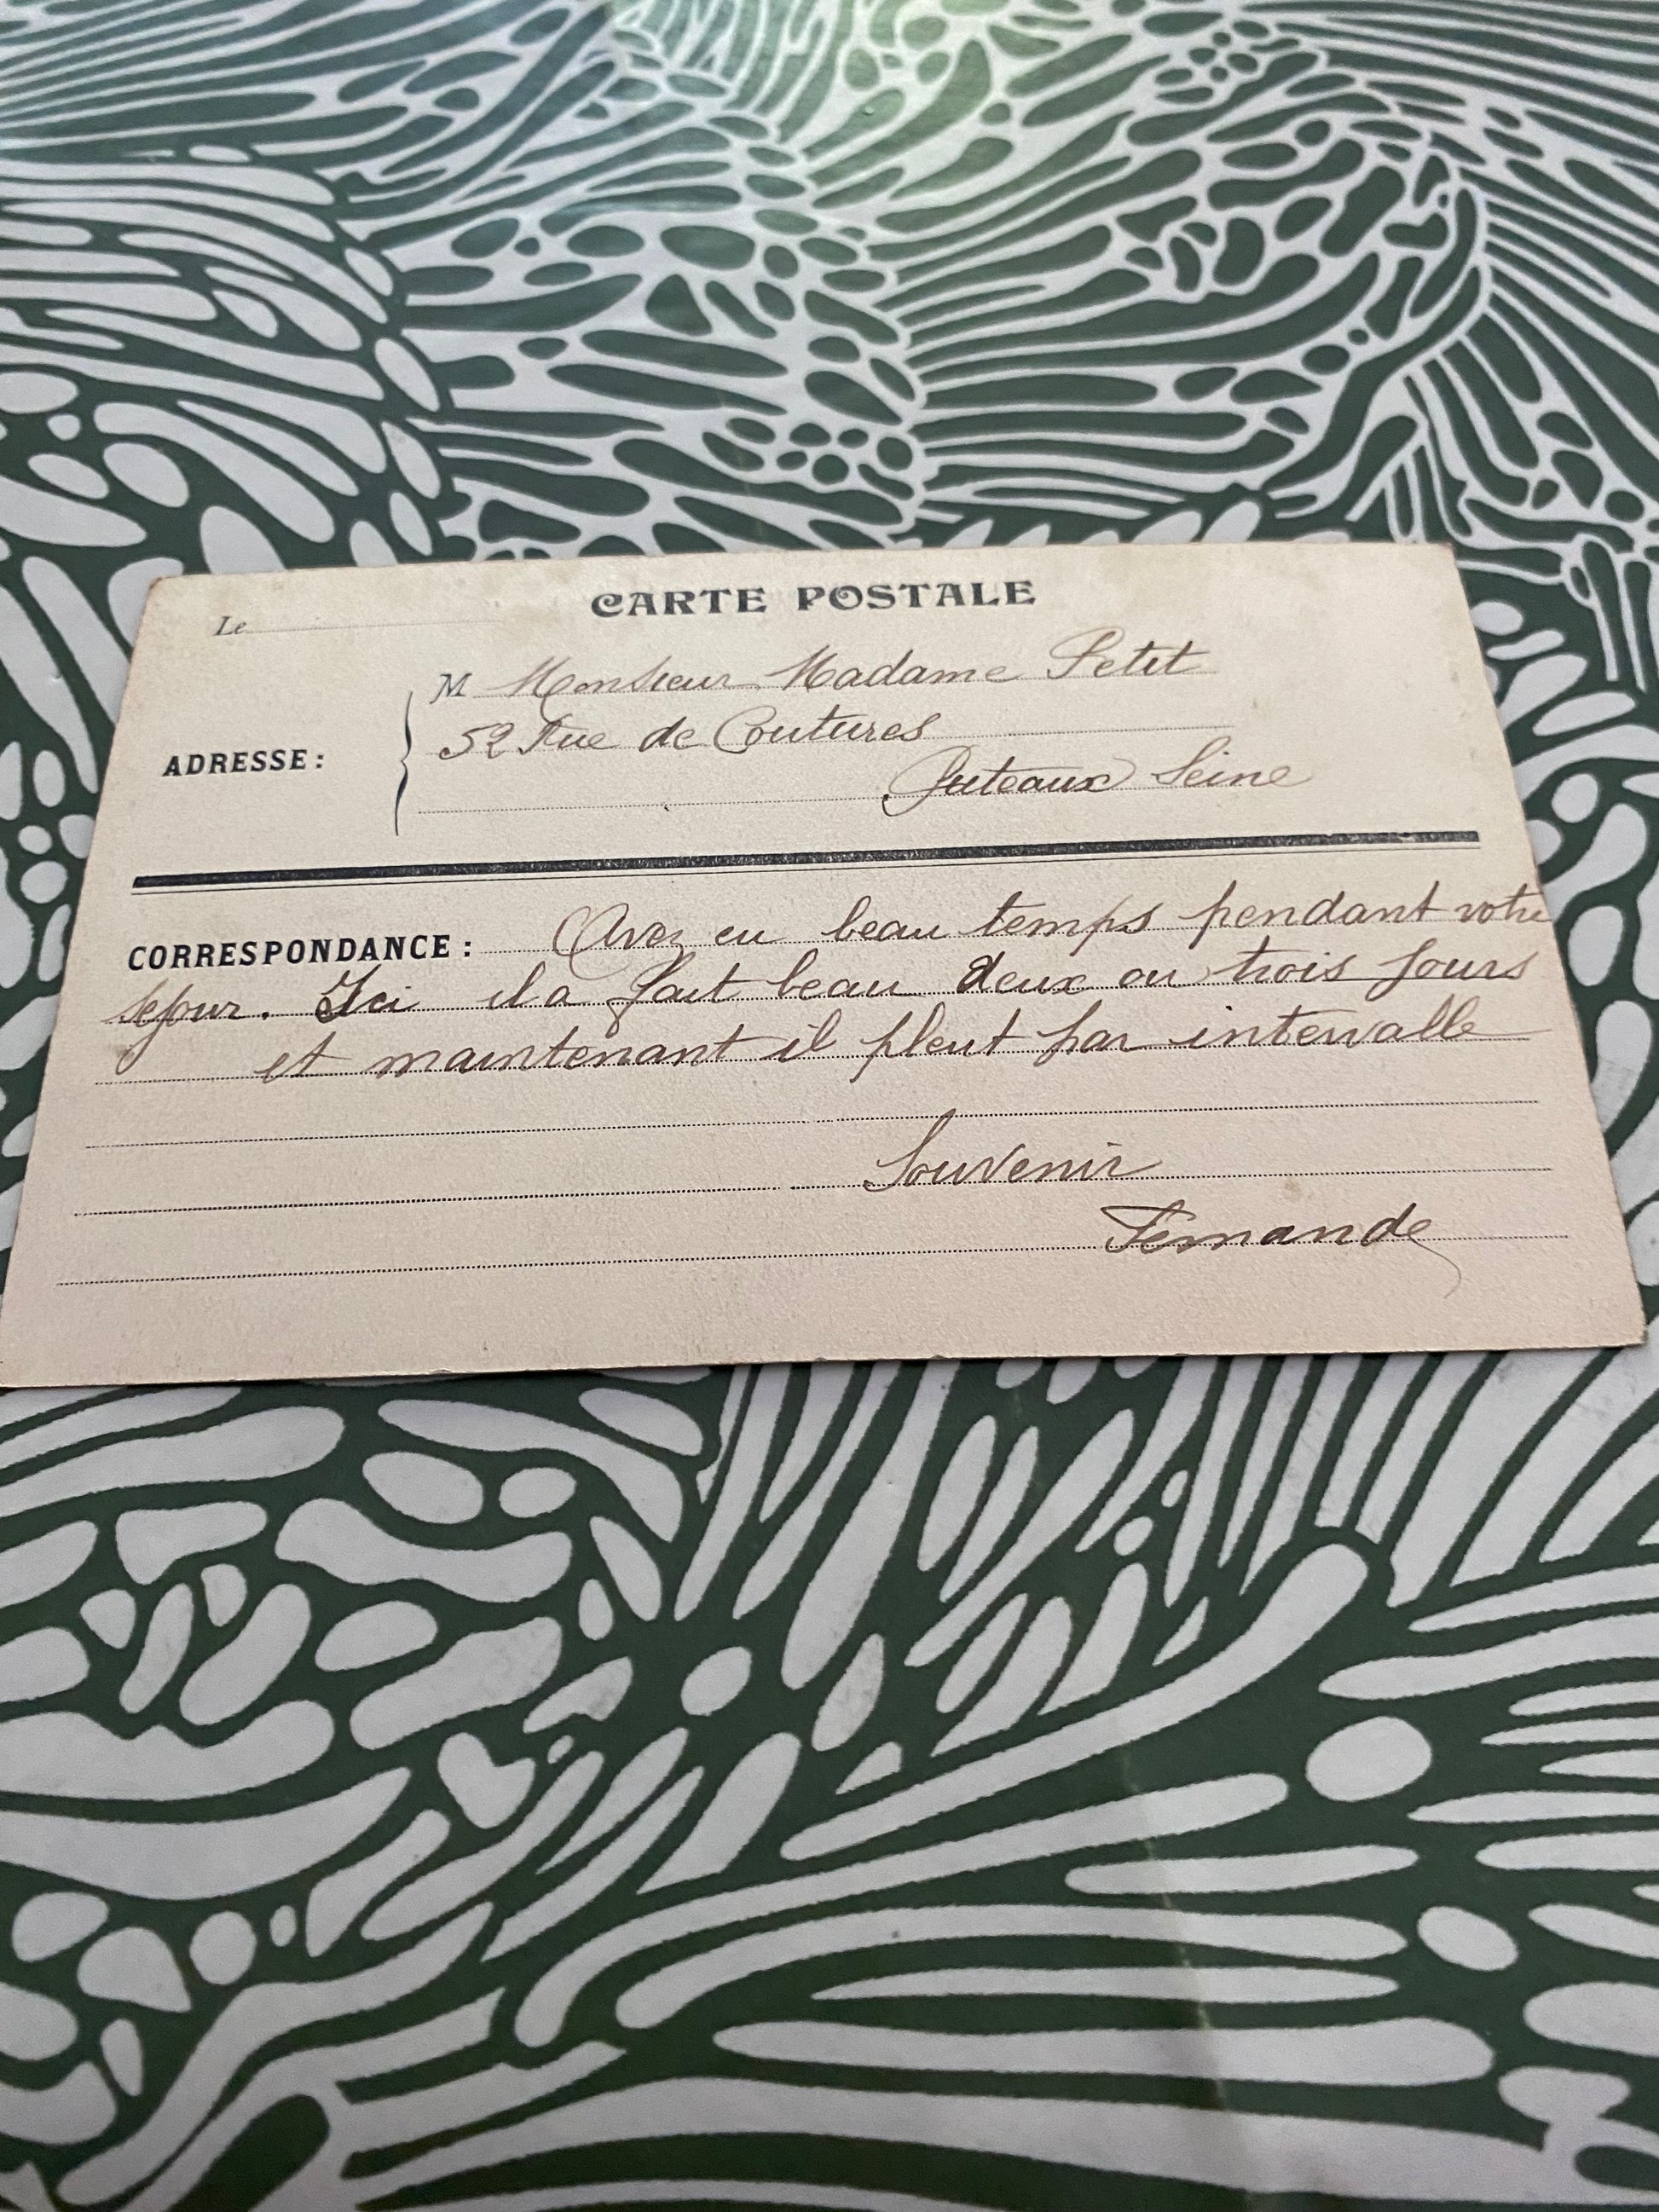 CARTE POSTALE
Le
M Monsieur Madame Petit
ADRESSE :
52 Rue de Coutures
Puteaux Seine
CORRESPONDANCE : Avez eu beau temps pendant votre
séjour. Ici il a fait beau deux ou trois jours
et maintenant il pleut par intervalle
Souvenir
Fernande